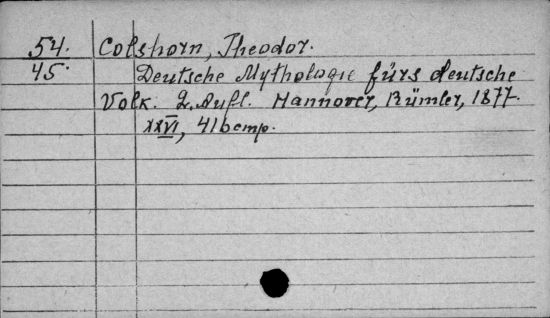 54. Colshorn, Theodor.
45. Deutsche Mythologie fürs deutsche
Volk. 2. Aufl. Hannover, Rümler, 1877.
XXVI, 416 стр.